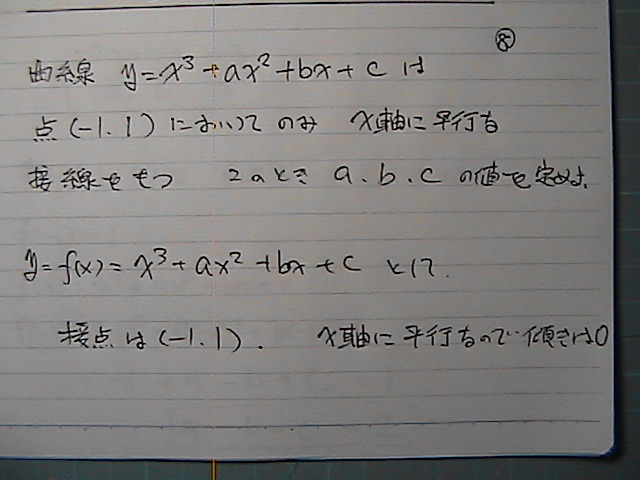 ⑧
曲線 y=x³+ax²+bx+c は
点(-1.1)においてのみ x軸に平行な
接線をもつ このとき a.b.c の値を定めよ.
y=f(x)=x³+ax²+bx+c として.
接点は(-1.1). x軸に平行なので傾きは0